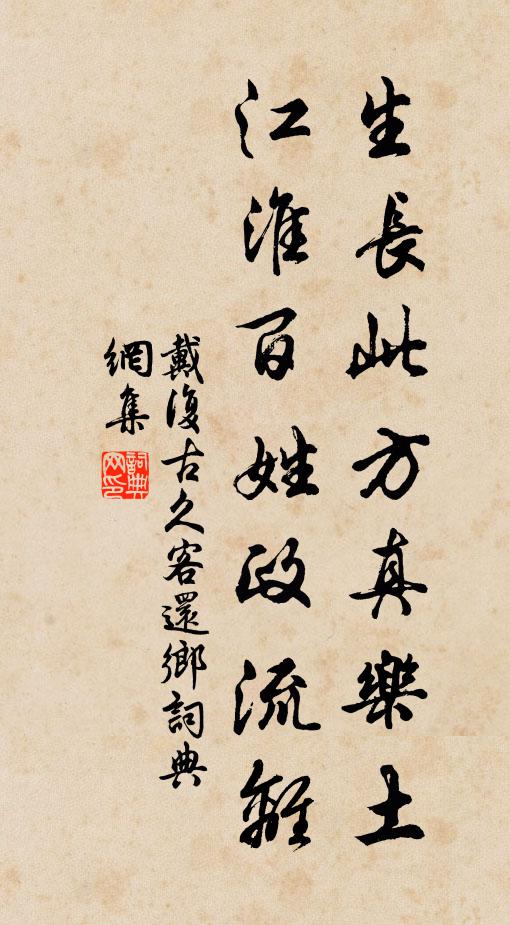 生長此方真樂土
江淮百姓政流離
戴復古久客還鄉詞典
網集
詞典
网印